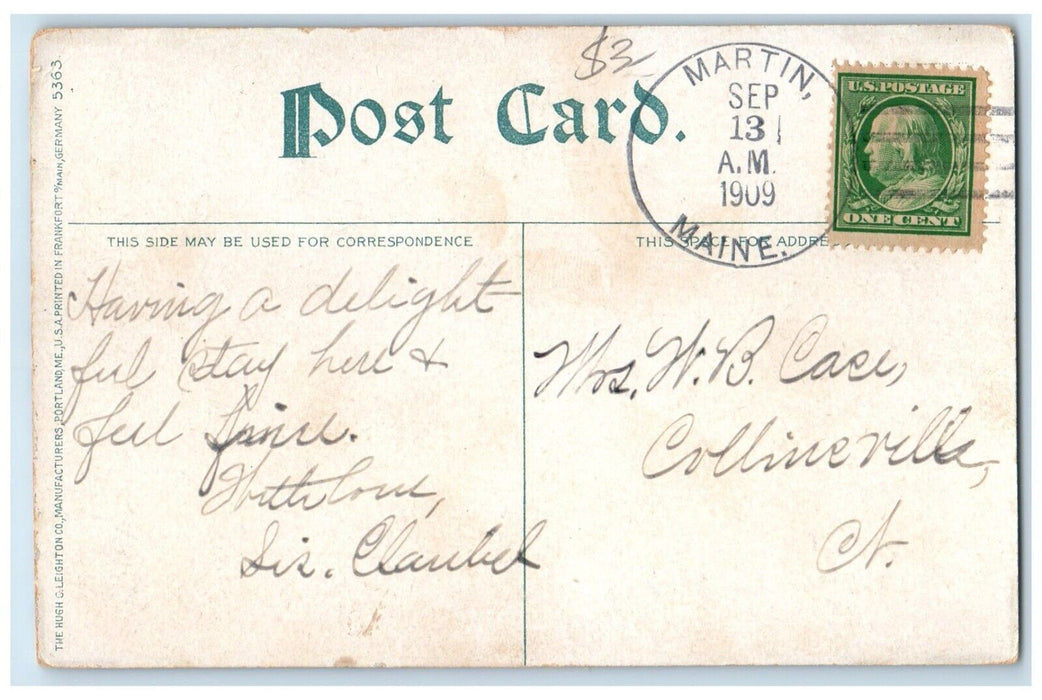 $2
Post Card.
MARTIN,
SEP
13
A.M.
1909
MAINE.
U.S. POSTAGE
ONE CENT
THIS SIDE MAY BE USED FOR CORRESPONDENCE
THIS SPACE FOR ADDRE
Having a delight
ful stay here &
feel fine.
With love,
Sis.
Mrs. W. B. Case,
Collinsville,
Ct.
THE HUGH C. LEIGHTON CO., MANUFACTURERS, PORTLAND, ME., U.S.A. PRINTED IN FRANKFORT o/MAIN, GERMANY 5363.